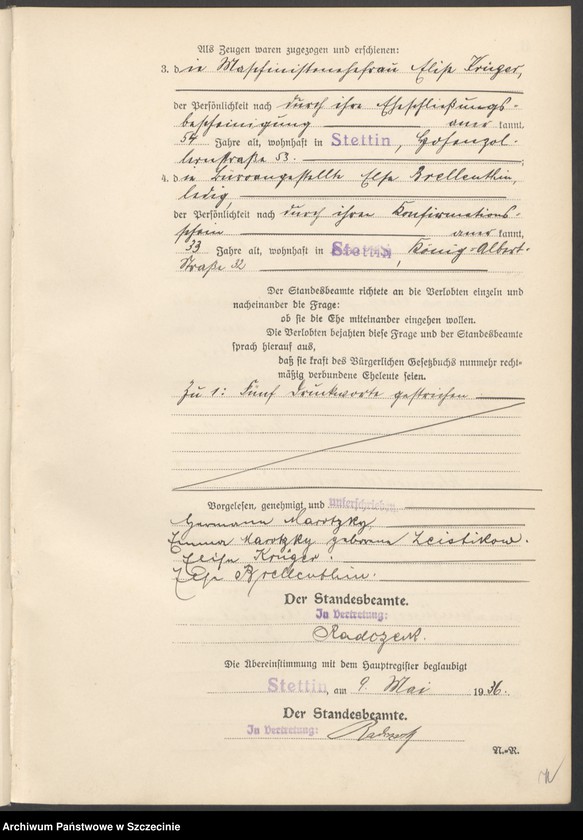 Als Zeugen waren zugezogen und erschienen:
3. die Maschinistenehefrau Elise Krüger,
der Persönlichkeit nach durch ihre Eheschließungs-
bescheinigung aner kannt,
54 Jahre alt, wohnhaft in Stettin, Hohenzol-
lernstraße 53.
4. die Büroangestellte Else Brellenthin,
ledig,
der Persönlichkeit nach durch ihren Konfirmations-
schein aner kannt,
33 Jahre alt, wohnhaft in Stettin, König-Albert-
Straße 32
Der Standesbeamte richtete an die Verlobten einzeln und
nacheinander die Frage:
ob sie die Ehe miteinander eingehen wollen.
Die Verlobten bejahten diese Frage und der Standesbeamte
sprach hierauf aus,
daß sie kraft des Bürgerlichen Gesetzbuchs nunmehr recht-
mäßig verbundene Eheleute seien.
Zu 1: Fünf Druckworte gestrichen
Vorgelesen, genehmigt und unterschrieben
Hermann Marotzky
Emma Marotzky geborene Leistikow.
Elise Krüger.
Else Brellenthin.
Der Standesbeamte.
In Vertretung:
Die Übereinstimmung mit dem Hauptregister beglaubigt
Stettin, am 9. Mai 1936.
Der Standesbeamte.
In Vertretung:
N.-R.
Archiwum Państwowe w Szczecinie